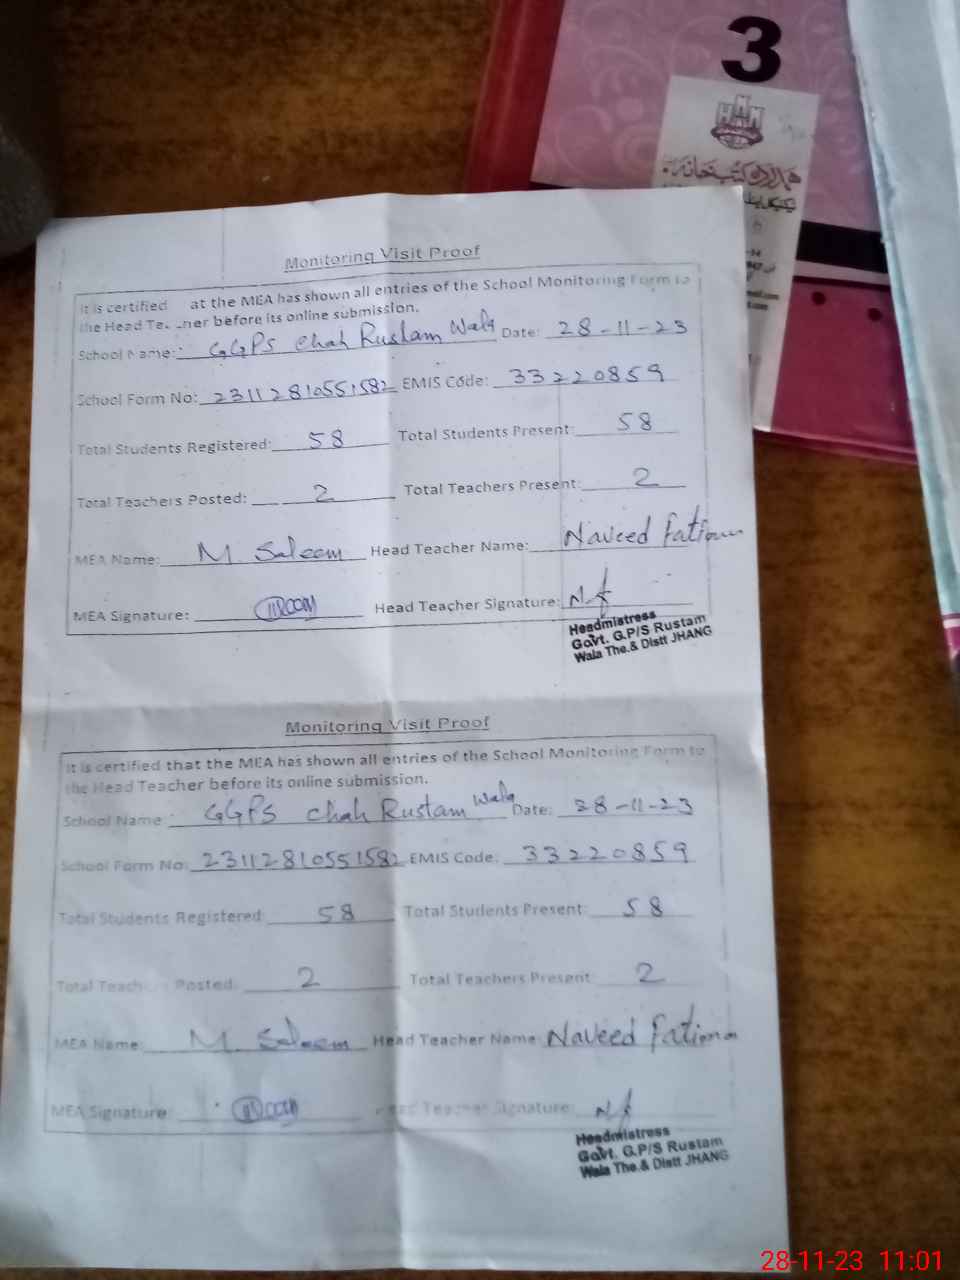 3
HANNAN
ہمدرد کتب خانہ
Monitoring Visit Proof
It is certified at the MEA has shown all entries of the School Monitoring Form to
the Head Teacher before its online submission.
School Name: GGPS Chah Rustam Wala Date: 28-11-23
School Form No: 23112810551582 EMIS Code: 33220859
Total Students Registered: 58 Total Students Present: 58
Total Teachers Posted: 2 Total Teachers Present: 2
MEA Name: M. Saleem Head Teacher Name: Naveed Fatima
MEA Signature: Head Teacher Signature: Nf
Headmistress
Govt. G.P/S Rustam
Wala The.& Distt JHANG
Monitoring Visit Proof
It is certified that the MEA has shown all entries of the School Monitoring Form to
the Head Teacher before its online submission.
School Name: GGPS Chah Rustam Wala Date: 28-11-23
School Form No: 23112810551582 EMIS Code: 33220859
Total Students Registered: 58 Total Students Present: 58
Total Teachers Posted: 2 Total Teachers Present: 2
MEA Name: M. Saleem Head Teacher Name Naveed Fatima
MEA Signature: Head Teacher Signature: Nf
Headmistress
Govt. G.P/S Rustam
Wala The.& Distt JHANG
28-11-23 11:01